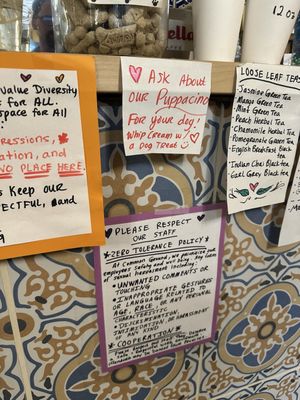 Value Diversity
s for All.
space for All
ressions,
ation, and
NO PLACE HERE
s Keep Our
ECTFUL, and
Ask About
our Puppacino
For your dog!
Whip Cream w/
a Dog Treat
LOOSE LEAF TEA
Jasmine Green Tea
Mango Green Tea
Mint Green Tea
Peach Herbal Tea
Chamomile Herbal Tea
Pomegranate Green Tea
English Breakfast Black Tea
Indian Chai Black Tea
Earl Grey Black Tea
12 oz
PLEASE RESPECT
OUR STAFF
ZERO TOLERANCE POLICY
At Common Ground, we prioritize our
employees safety and will
of sexual harassment including:
• UNWANTED COMMENTS OR
TOUCHING
• INAPPROPRIATE GESTURES
OR LANGUAGE RELATED TO
AGE, RACE, OR ANY PERSONAL
CHARACTERISTIC
• DISCRIMINATION,
INTIMIDATION OR HARASSMENT
OF ANY KIND
• COOPERATION